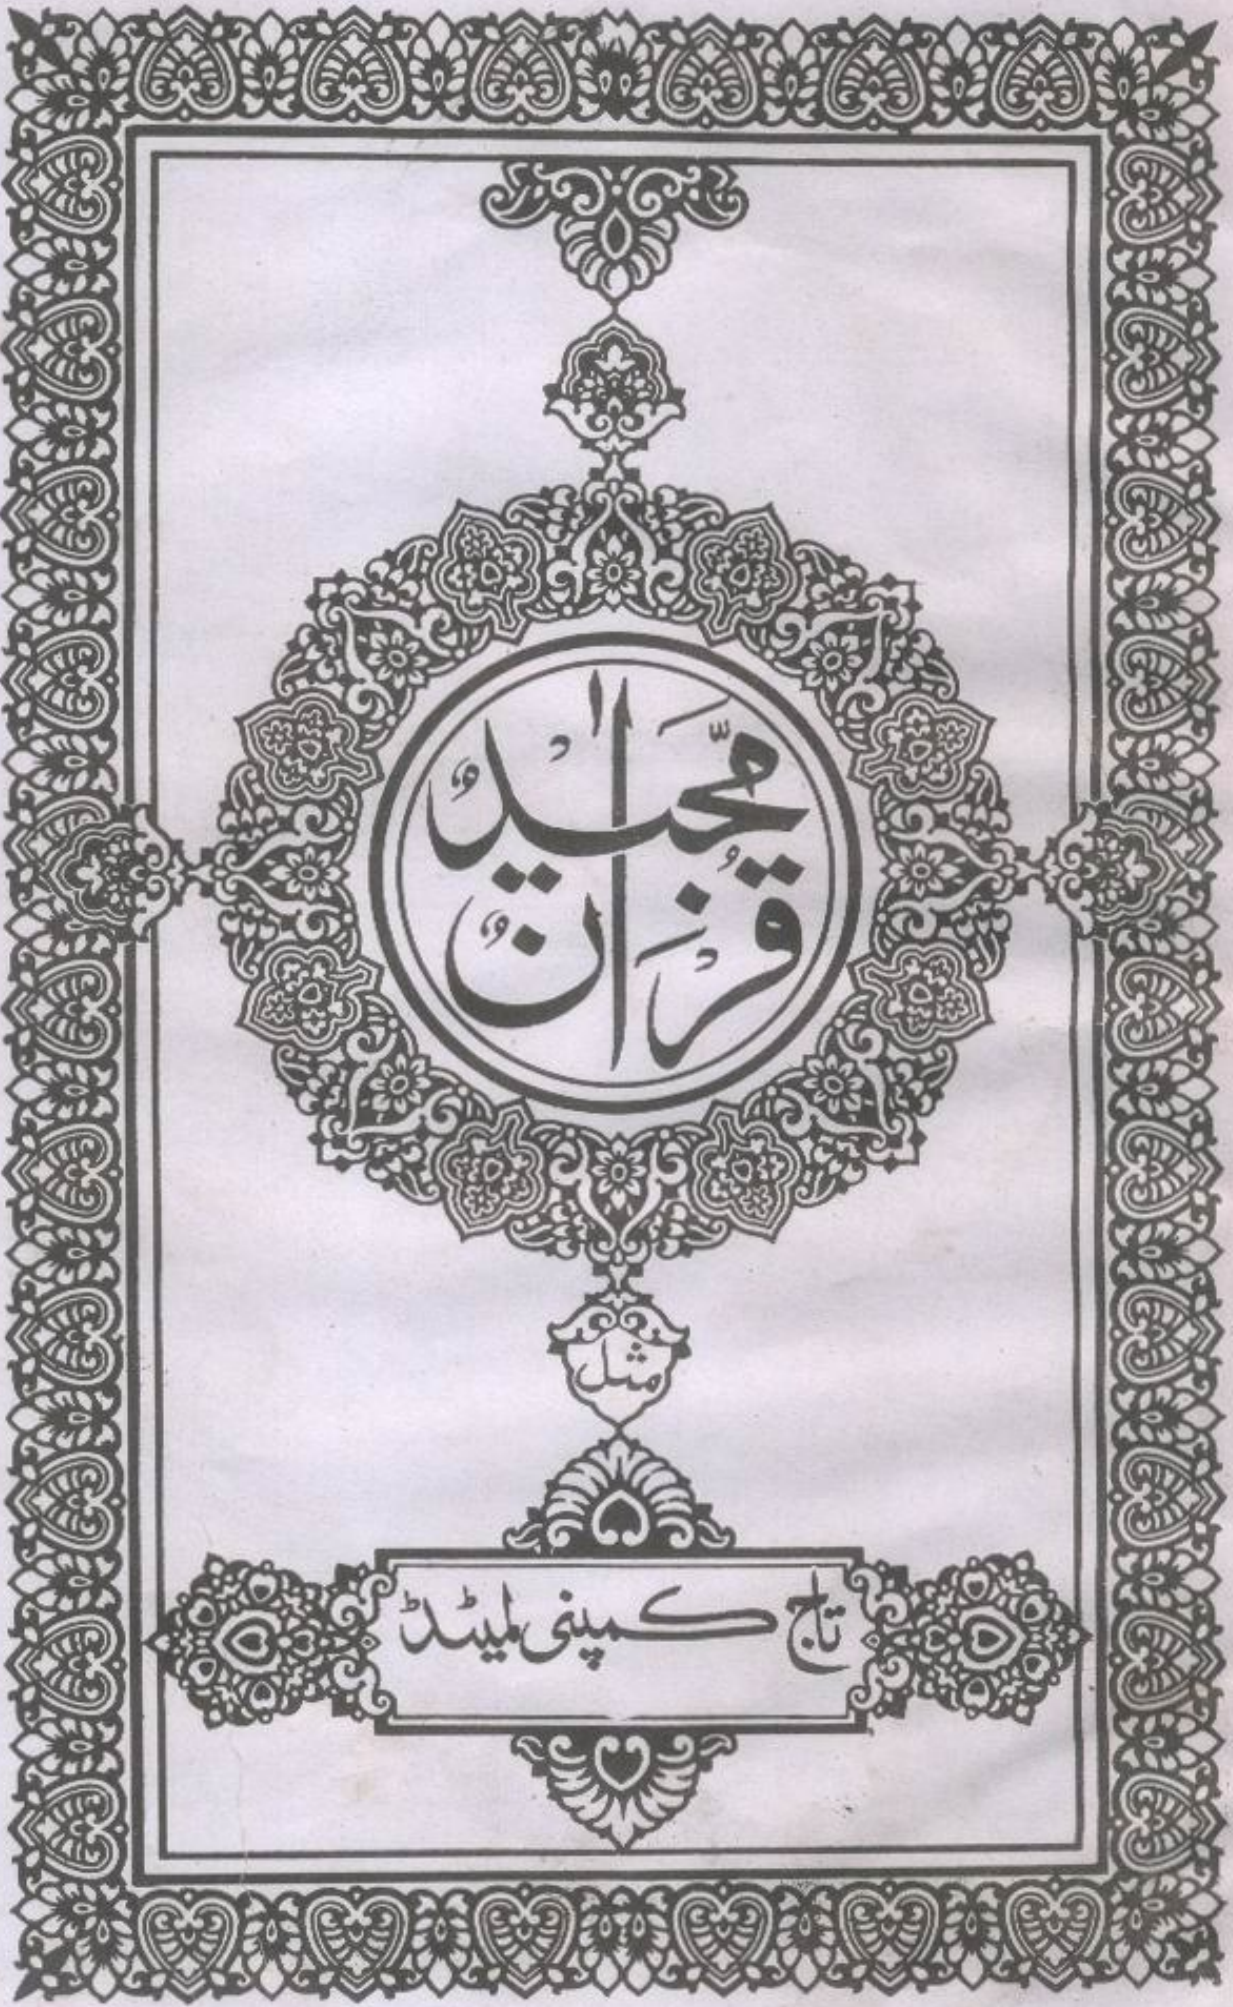 قُرْاٰنٌ
مَّجِیْدٌ
مثل
تاج کمپنی لمیٹڈ